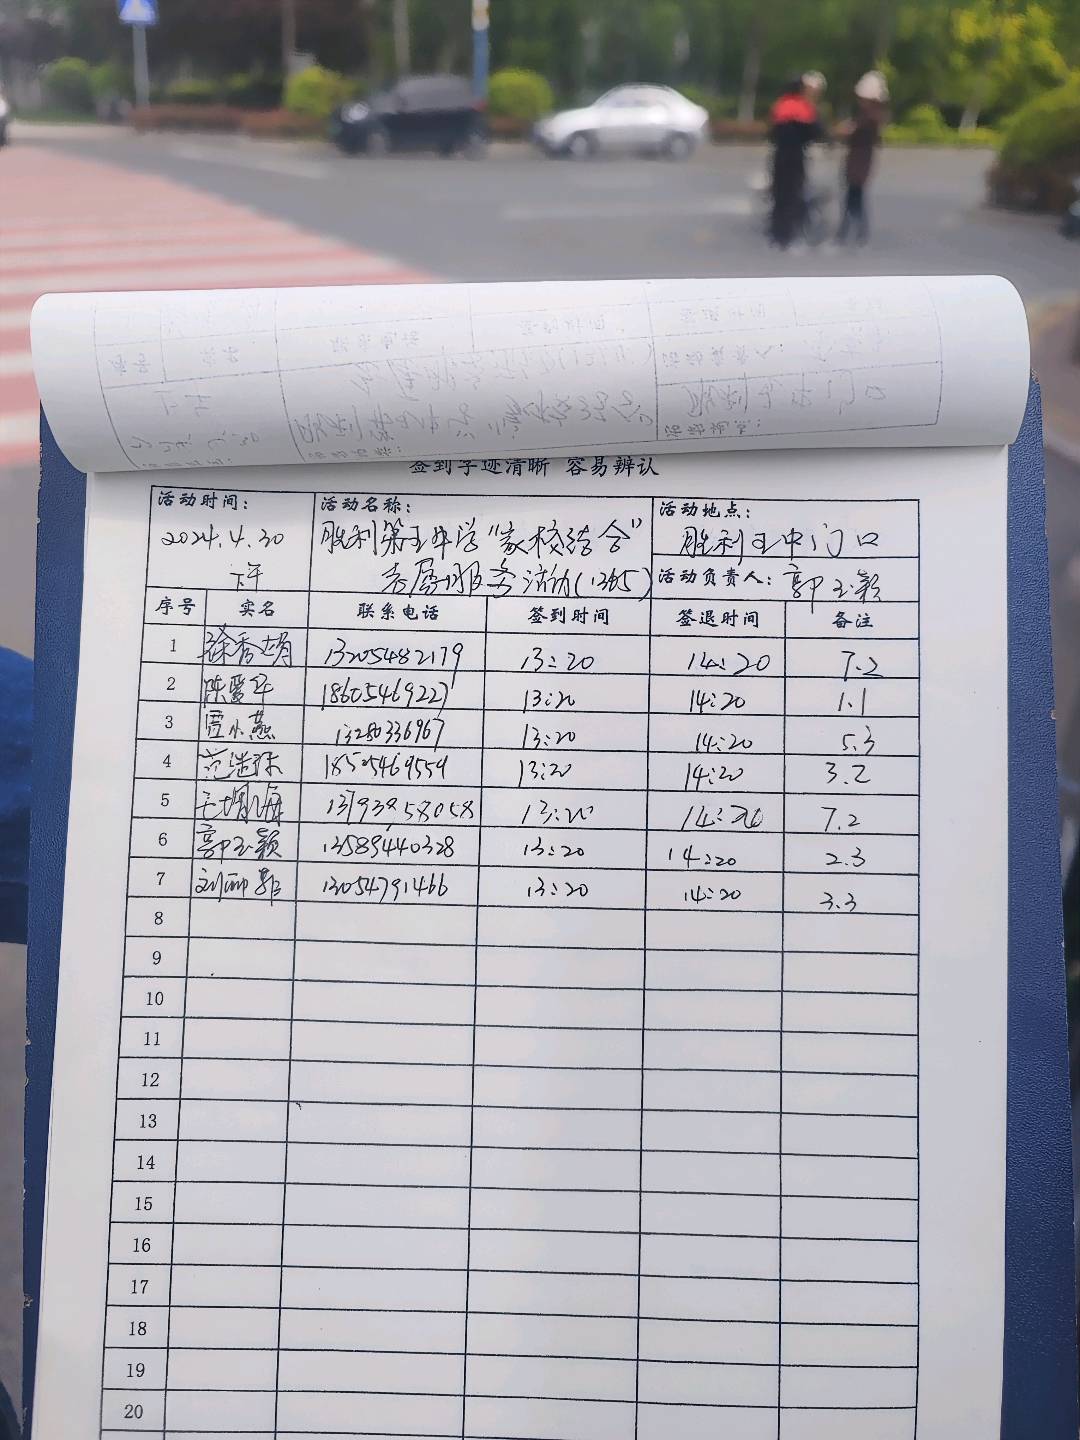 签到字迹清晰 容易辨认
活动时间： 活动名称： 活动地点：
2024.4.30 胜利第五中学“家校结合” 胜利五中门口
下午 志愿服务活动(1365) 活动负责人：郭玉颖
序号 实名 联系电话 签到时间 签退时间 备注
1 徐秀娟 13205482179 13:20 14:20 7.2
2 陈爱华 18605469227 13:20 14:20 1.1
3 贾小燕 13280336967 13:20 14:20 5.3
4 18525469559 13:20 14:20 3.2
5 13793958058 13:20 14:20 7.2
6 郭玉颖 13589440328 13:20 14:20 2.3
7 13054791466 13:20 14:20 3.3
8
9
10
11
12
13
14
15
16
17
18
19
20